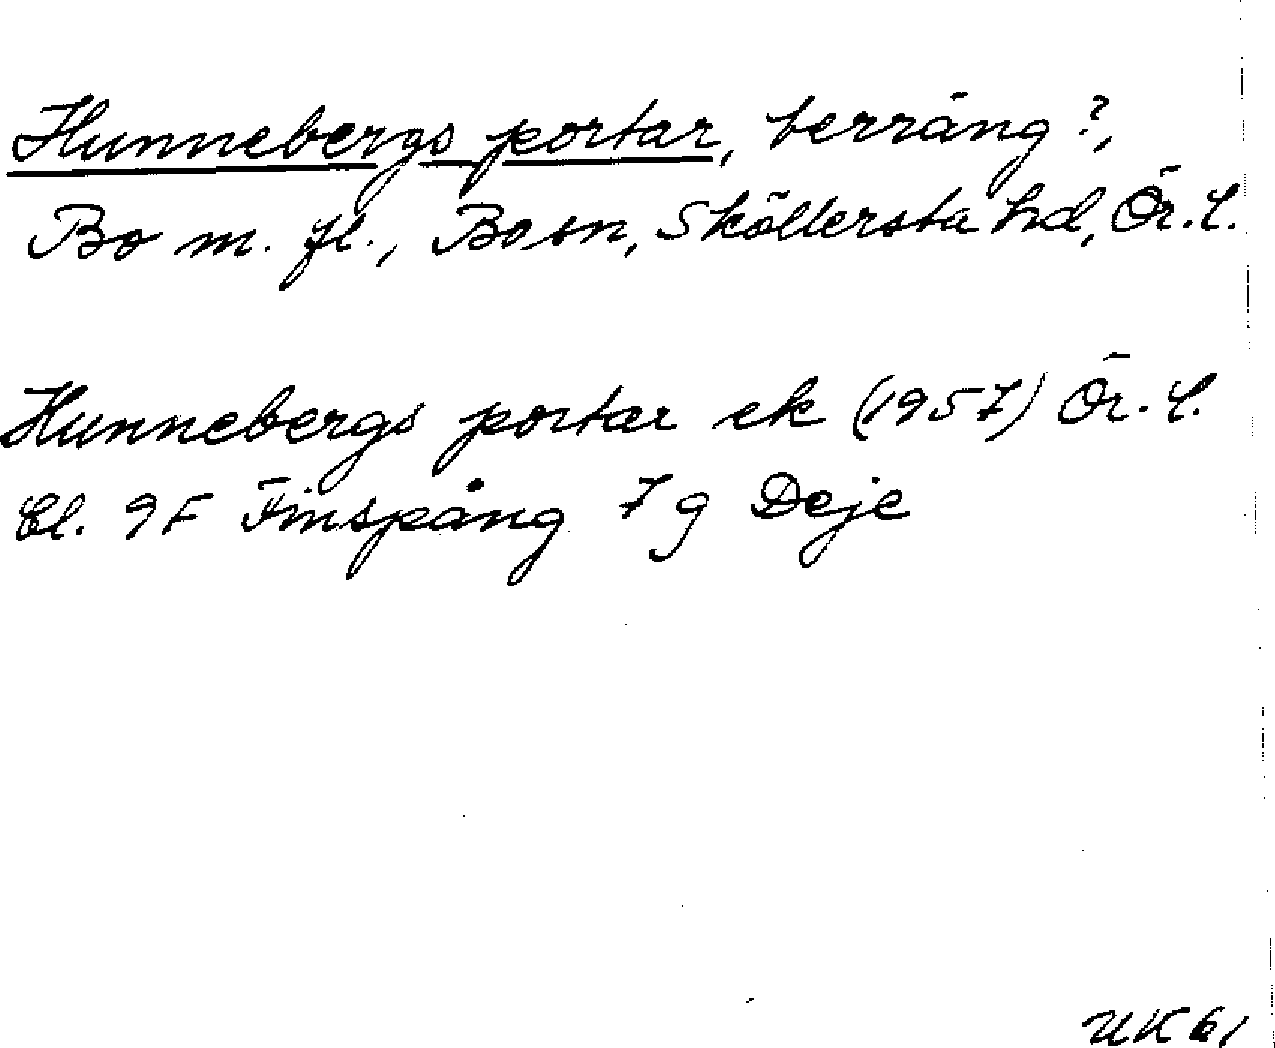 Hunnebergs portar, terräng?,
Bo m. fl., Bo sn, Sköllersta hd, Ör. l.
Hunnebergs portar ek (1957) Ör. l.
bl. 9F Finspång 7 g Deje
UK 61